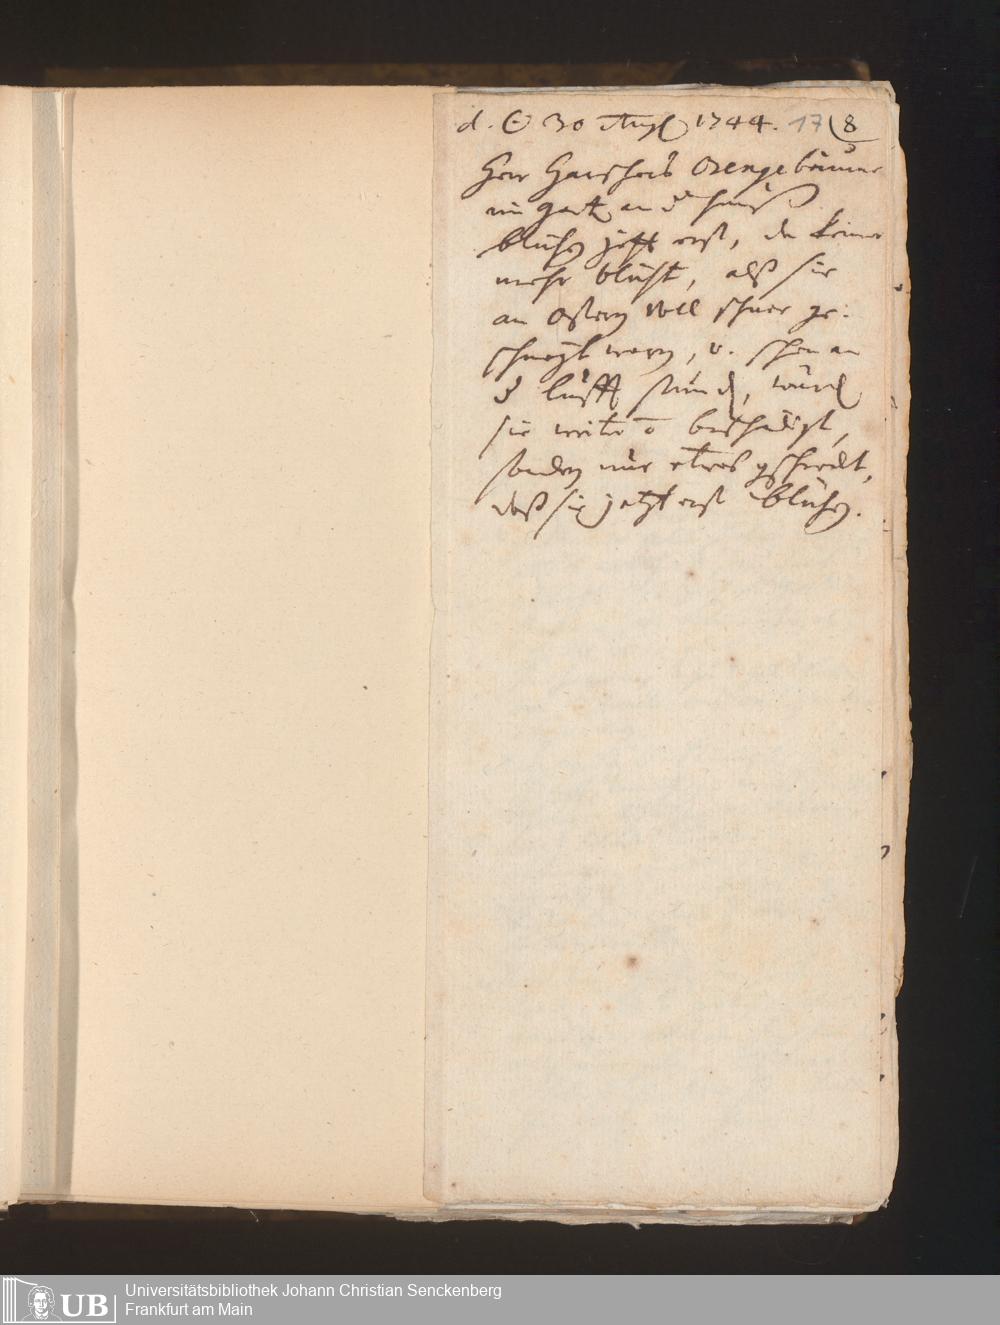 d. ☉ 30 Aug 1744. 17 8
Herr Orengebäume
im gart an d hauß
blühen jetzt erst, da keiner
mehr blüht, alß sie
an Ostern voll schnee ge-
schneyt warn, u. schon an
d lufft stunden, wurd
sie weiter o beschädigt,
sondern nur etwas geschreckt,
daß sie jetzt erst blühen.
Universitätsbibliothek Johann Christian Senckenberg
Frankfurt am Main
UB